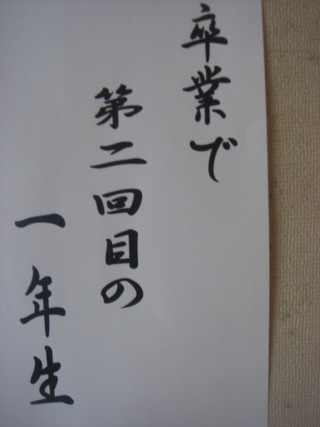 卒業で
第二回目の
一年生